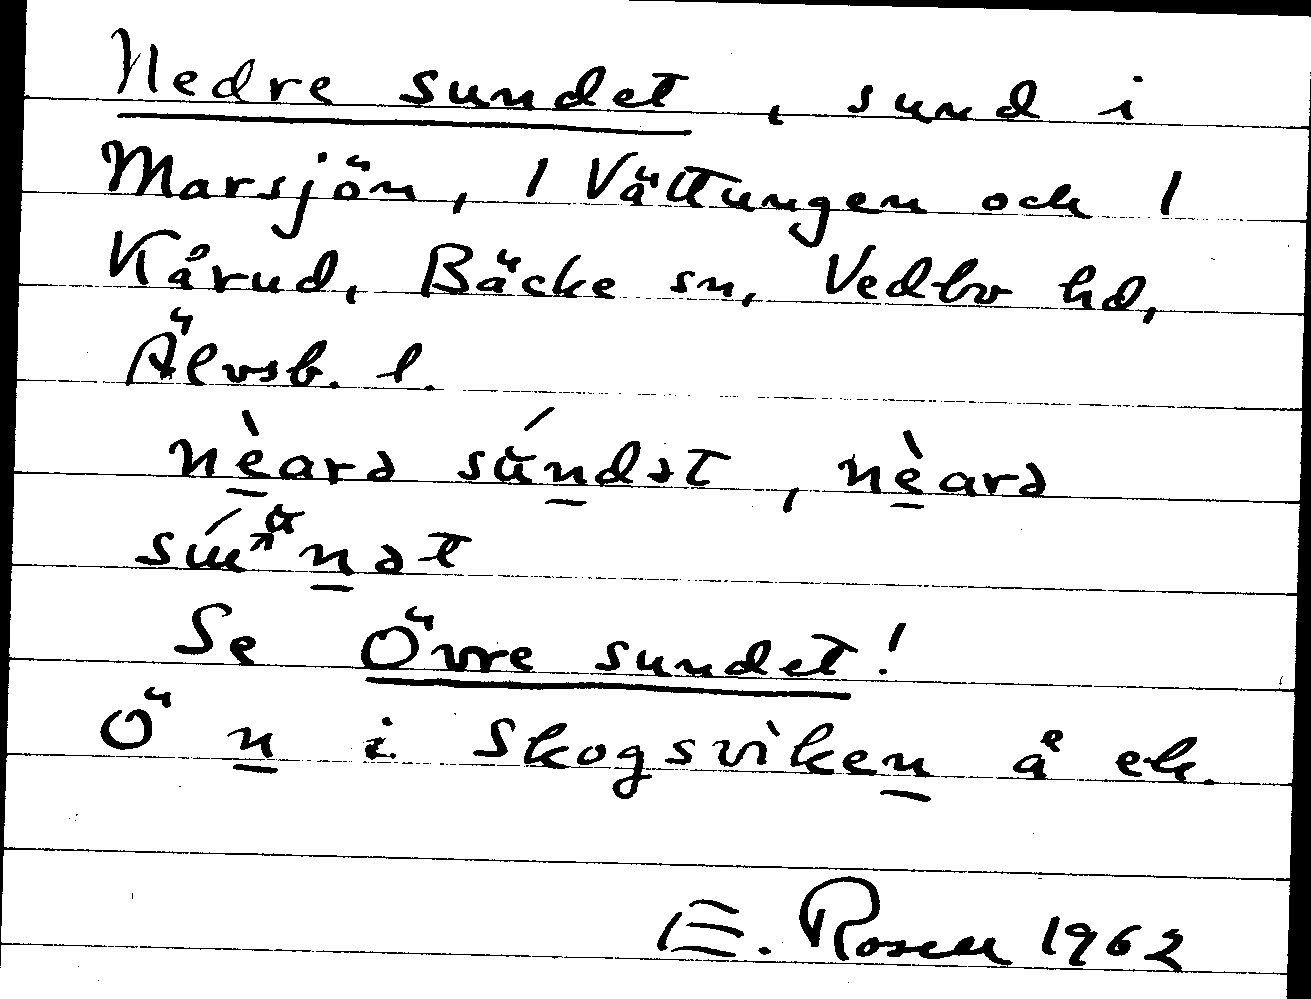 Nedre sundet, sund i
Marsjön, 1 Vättungen och 1
Kårud, Bäcke sn, Vedbo hd,
Älvsb. l.
nèarə súndət, nèarə
nət
Se Övre sundet!
Ön i Skogsviken å ek.
E. Rosen 1962